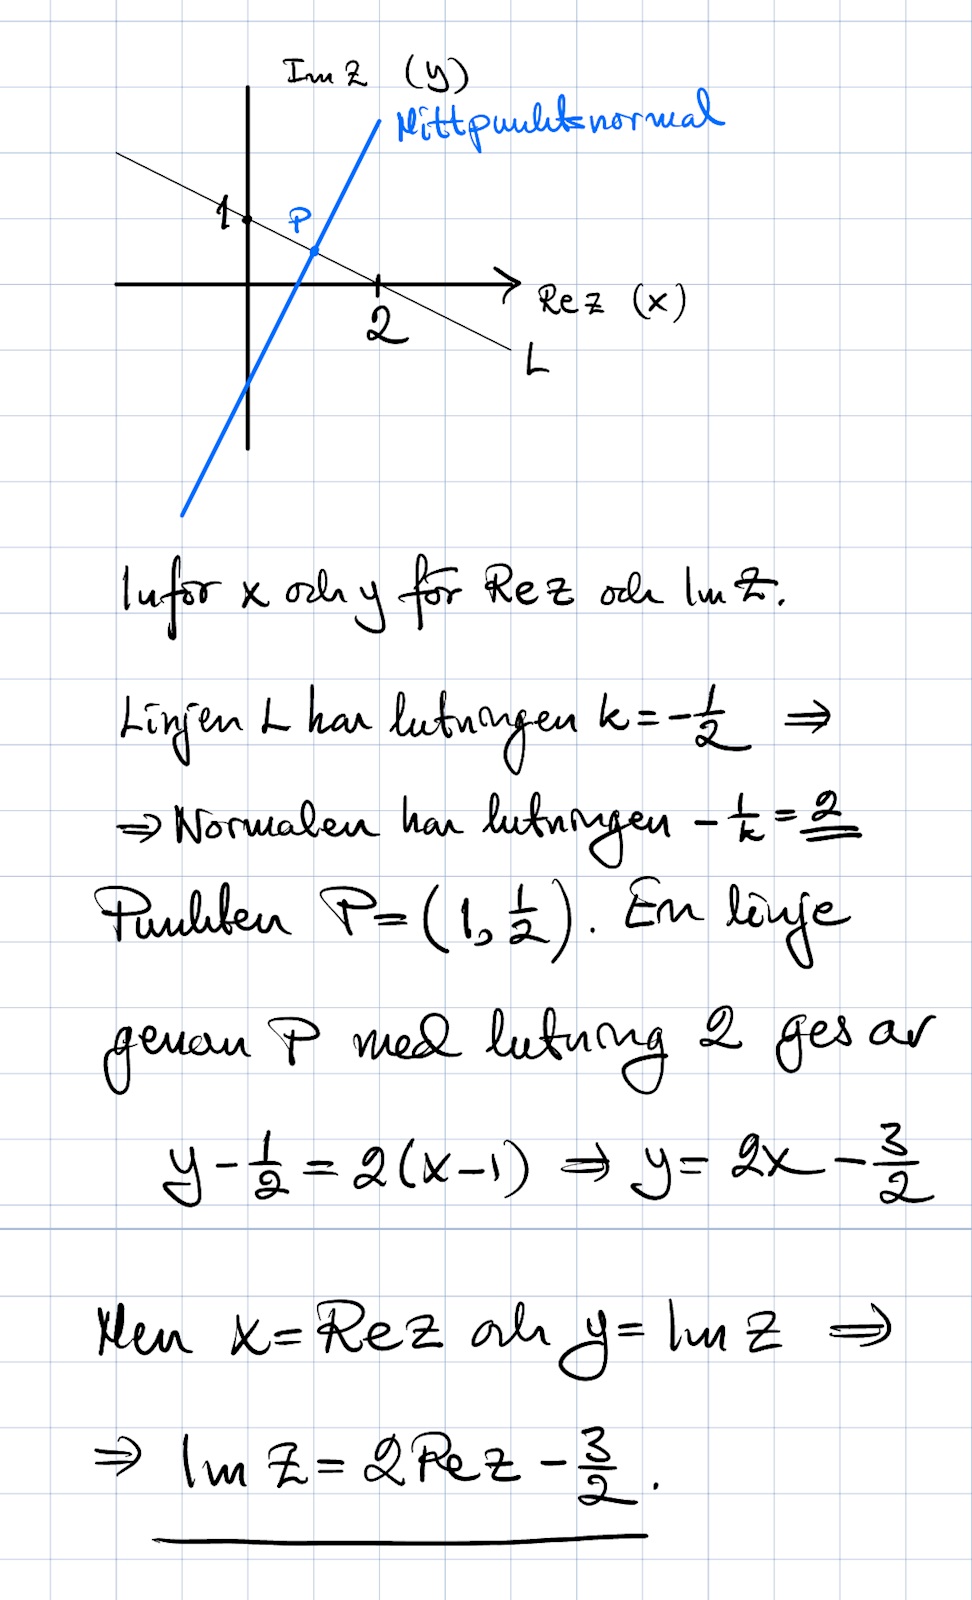 Im z (y)
Mittpunktsnormal
1
P
Re z (x)
2
L
Inför x och y för Re z och Im z.
Linjen L har lutningen k = -1/2 ⇒
⇒ Normalen har lutningen - 1/k = 2
Punkten P = (1, 1/2). En linje
genom P med lutning 2 ges av
y - 1/2 = 2(x-1) ⇒ y = 2x - 3/2
Men x = Re z och y = Im z ⇒
⇒ Im z = 2 Re z - 3/2.